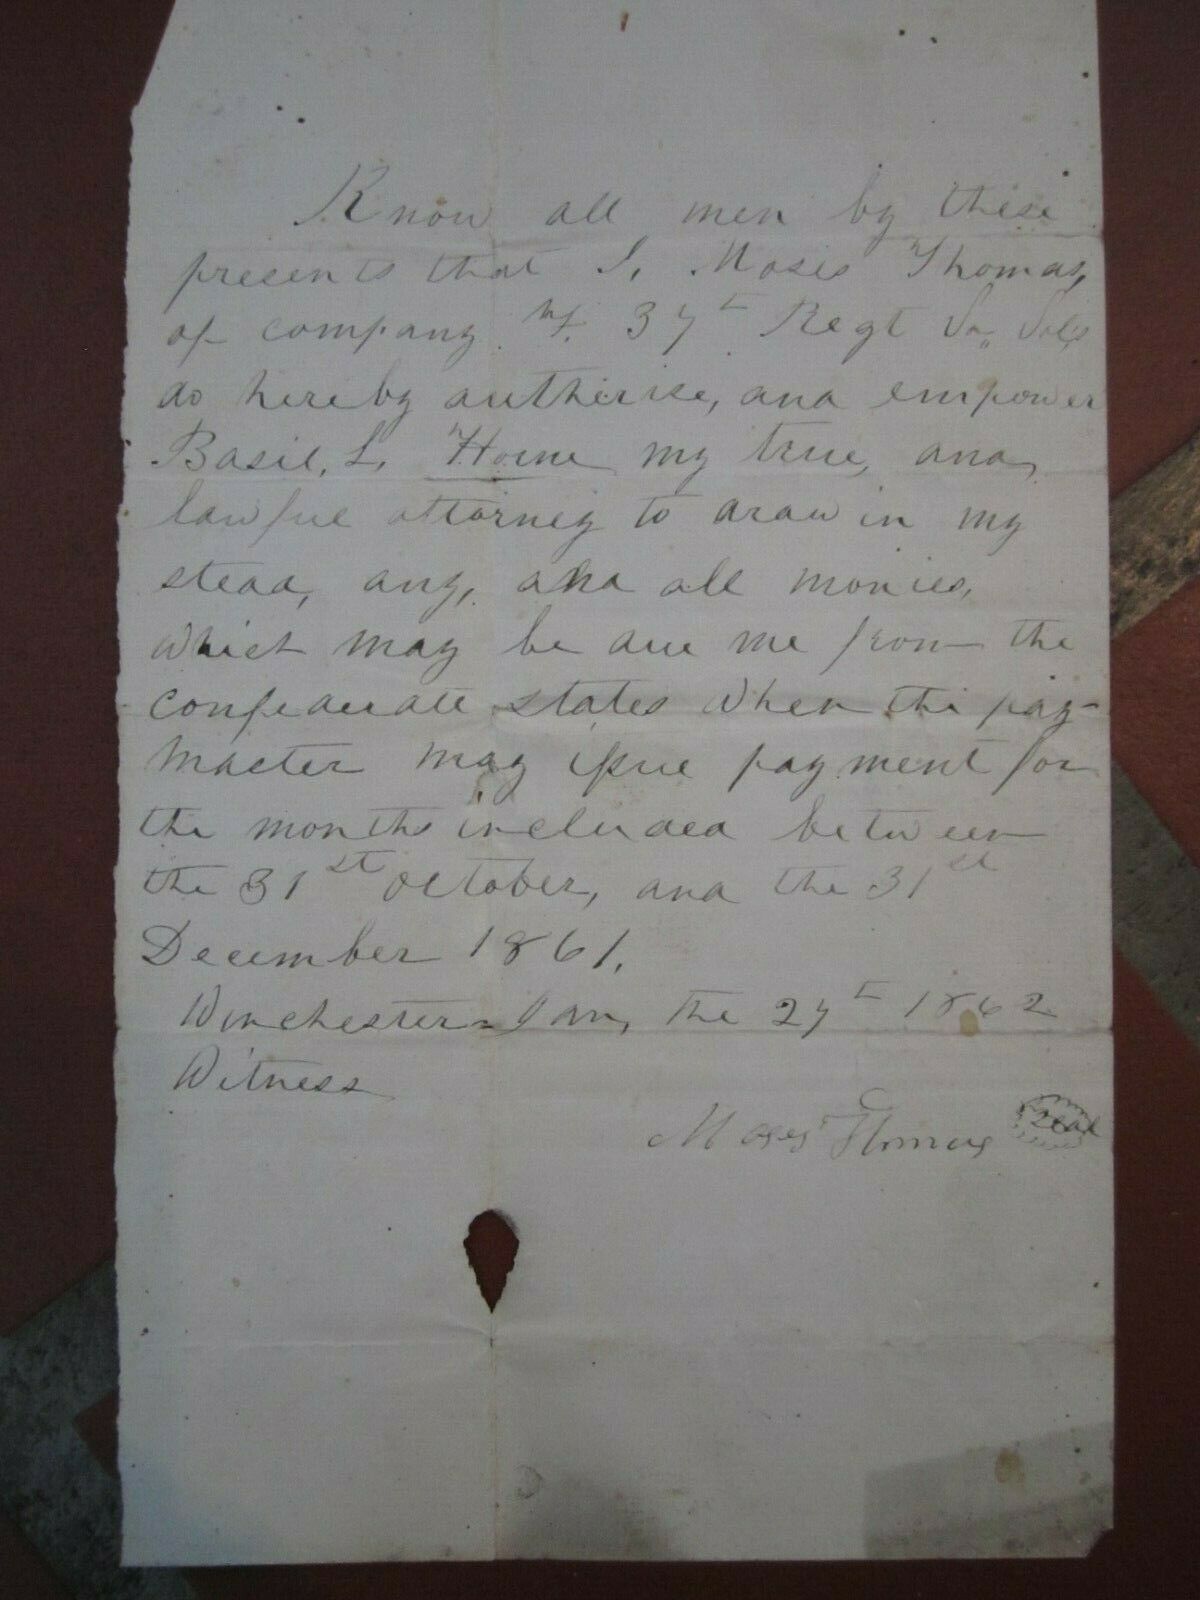 Know all men by these
presents that I, Moses Thomas,
of company F. 37t Regt Va,, Vols
do hereby autherise, and empower
Basil, L, Horne my true, and,
lawful attorney to draw in my
stead, any, and all monies,
which may be due me from the
confederate states when the pay-
master may issue payment for
the months included between
the 31st October, and the 31st
December 1861.
Winchester = Jan, the 27t 1862
Witness
Moses Thomas Seal